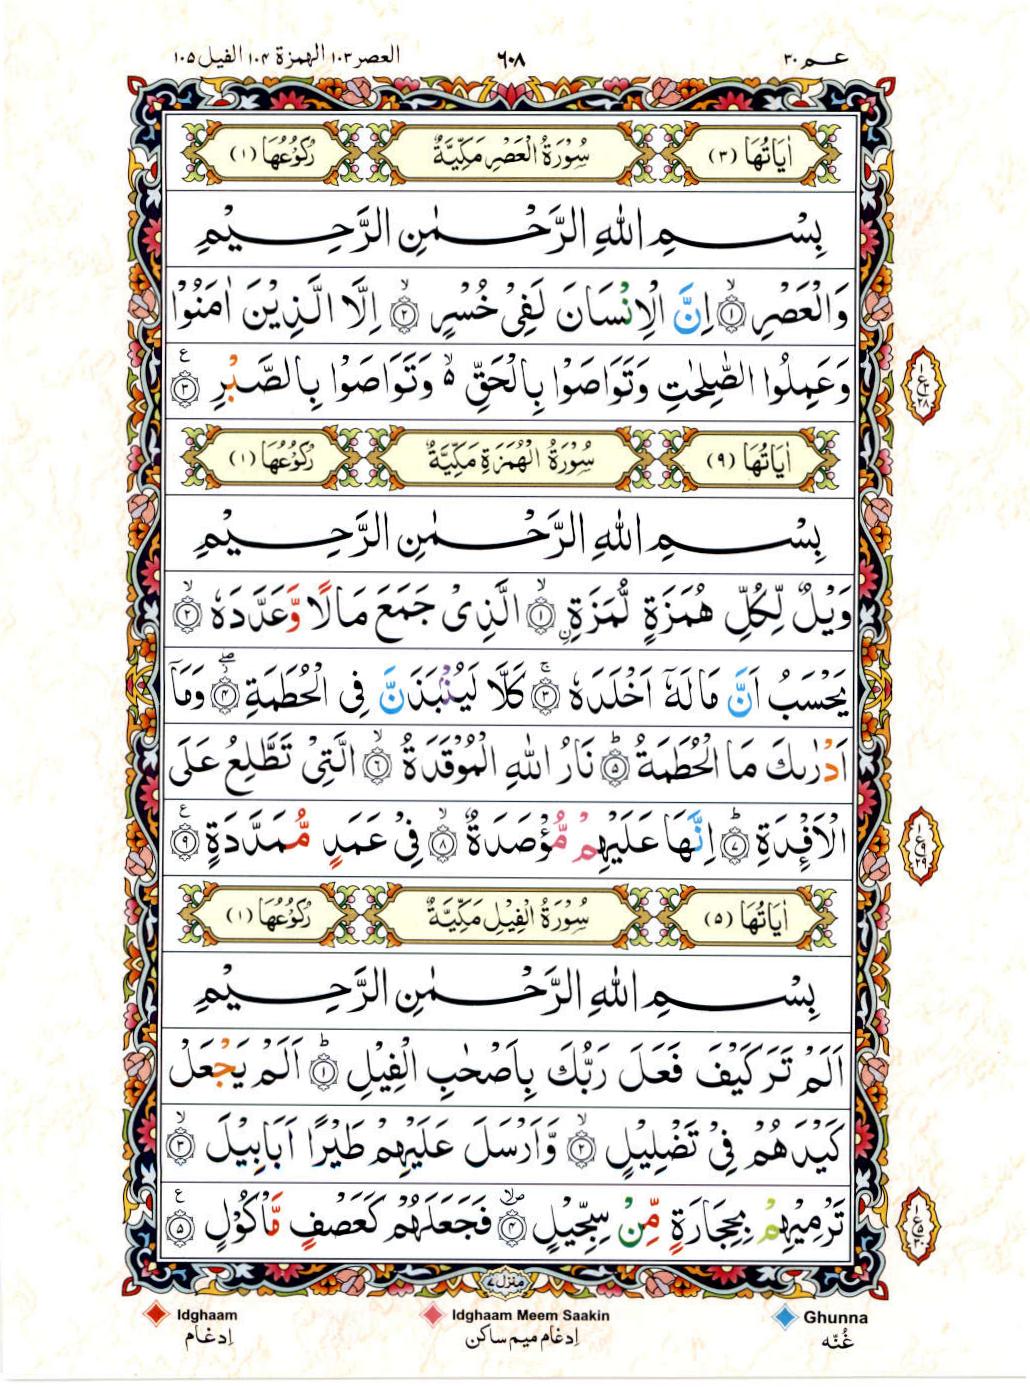 عـم ٣٠
٦٠٨
العصر ١٠٣ الهمزة ١٠٤ الفيل ١٠٥
اٰيَاتُهَا (٣) سُوْرَةُ الْعَصْرِ مَكِّيَّةٌ رُكُوْعُهَا (١)
بِسْمِ اللّٰهِ الرَّحْمٰنِ الرَّحِيْمِ
وَالْعَصْرِ ۙ﴿١﴾ اِنَّ الْاِنْسَانَ لَفِىْ خُسْرٍ ۙ﴿٢﴾ اِلَّا الَّذِيْنَ اٰمَنُوْا
وَعَمِلُوا الصّٰلِحٰتِ وَتَوَاصَوْا بِالْحَقِّ ەۙ وَتَوَاصَوْا بِالصَّبْرِ ﴿٣﴾ ع
اٰيَاتُهَا (٩) سُوْرَةُ الْهُمَزَةِ مَكِّيَّةٌ رُكُوْعُهَا (١)
بِسْمِ اللّٰهِ الرَّحْمٰنِ الرَّحِيْمِ
وَيْلٌ لِّكُلِّ هُمَزَةٍ لُّمَزَةِ ۙ﴿١﴾ اۨلَّذِىْ جَمَعَ مَالًا وَّعَدَّدَهٗ ۙ﴿٢﴾
يَحْسَبُ اَنَّ مَالَهٗۤ اَخْلَدَهٗ ۚ﴿٣﴾ كَلَّا لَيُنْۢبَذَنَّ فِى الْحُطَمَةِ ۖ﴿٤﴾ وَمَاۤ
اَدْرٰىكَ مَا الْحُطَمَةُ ؕ﴿٥﴾ نَارُ اللّٰهِ الْمُوْقَدَةُ ۙ﴿٦﴾ الَّتِىْ تَطَّلِعُ عَلَى
الْاَفْـِٕدَةِ ؕ﴿٧﴾ اِنَّهَا عَلَيْهِمْ مُّؤْصَدَةٌ ۙ﴿٨﴾ فِىْ عَمَدٍ مُّمَدَّدَةٍ ﴿٩﴾ ع
اٰيَاتُهَا (٥) سُوْرَةُ الْفِيْلِ مَكِّيَّةٌ رُكُوْعُهَا (١)
بِسْمِ اللّٰهِ الرَّحْمٰنِ الرَّحِيْمِ
اَلَمْ تَرَ كَيْفَ فَعَلَ رَبُّكَ بِاَصْحٰبِ الْفِيْلِ ؕ﴿١﴾ اَلَمْ يَجْعَلْ
كَيْدَهُمْ فِىْ تَضْلِيْلٍ ۙ﴿٢﴾ وَّاَرْسَلَ عَلَيْهِمْ طَيْرًا اَبَابِيْلَ ۙ﴿٣﴾
تَرْمِيْهِمْ بِحِجَارَةٍ مِّنْ سِجِّيْلٍ ۙ﴿٤﴾ فَجَعَلَهُمْ كَعَصْفٍ مَّاْكُوْلٍ ﴿٥﴾ ع
منزل ٧
Ghunna
غُنّه
Idghaam Meem Saakin
اِدغام ميم ساكن
Idghaam
اِدغام